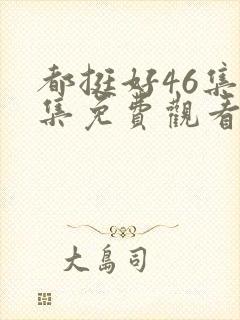 都挺好46集
集免費觀看
大島司